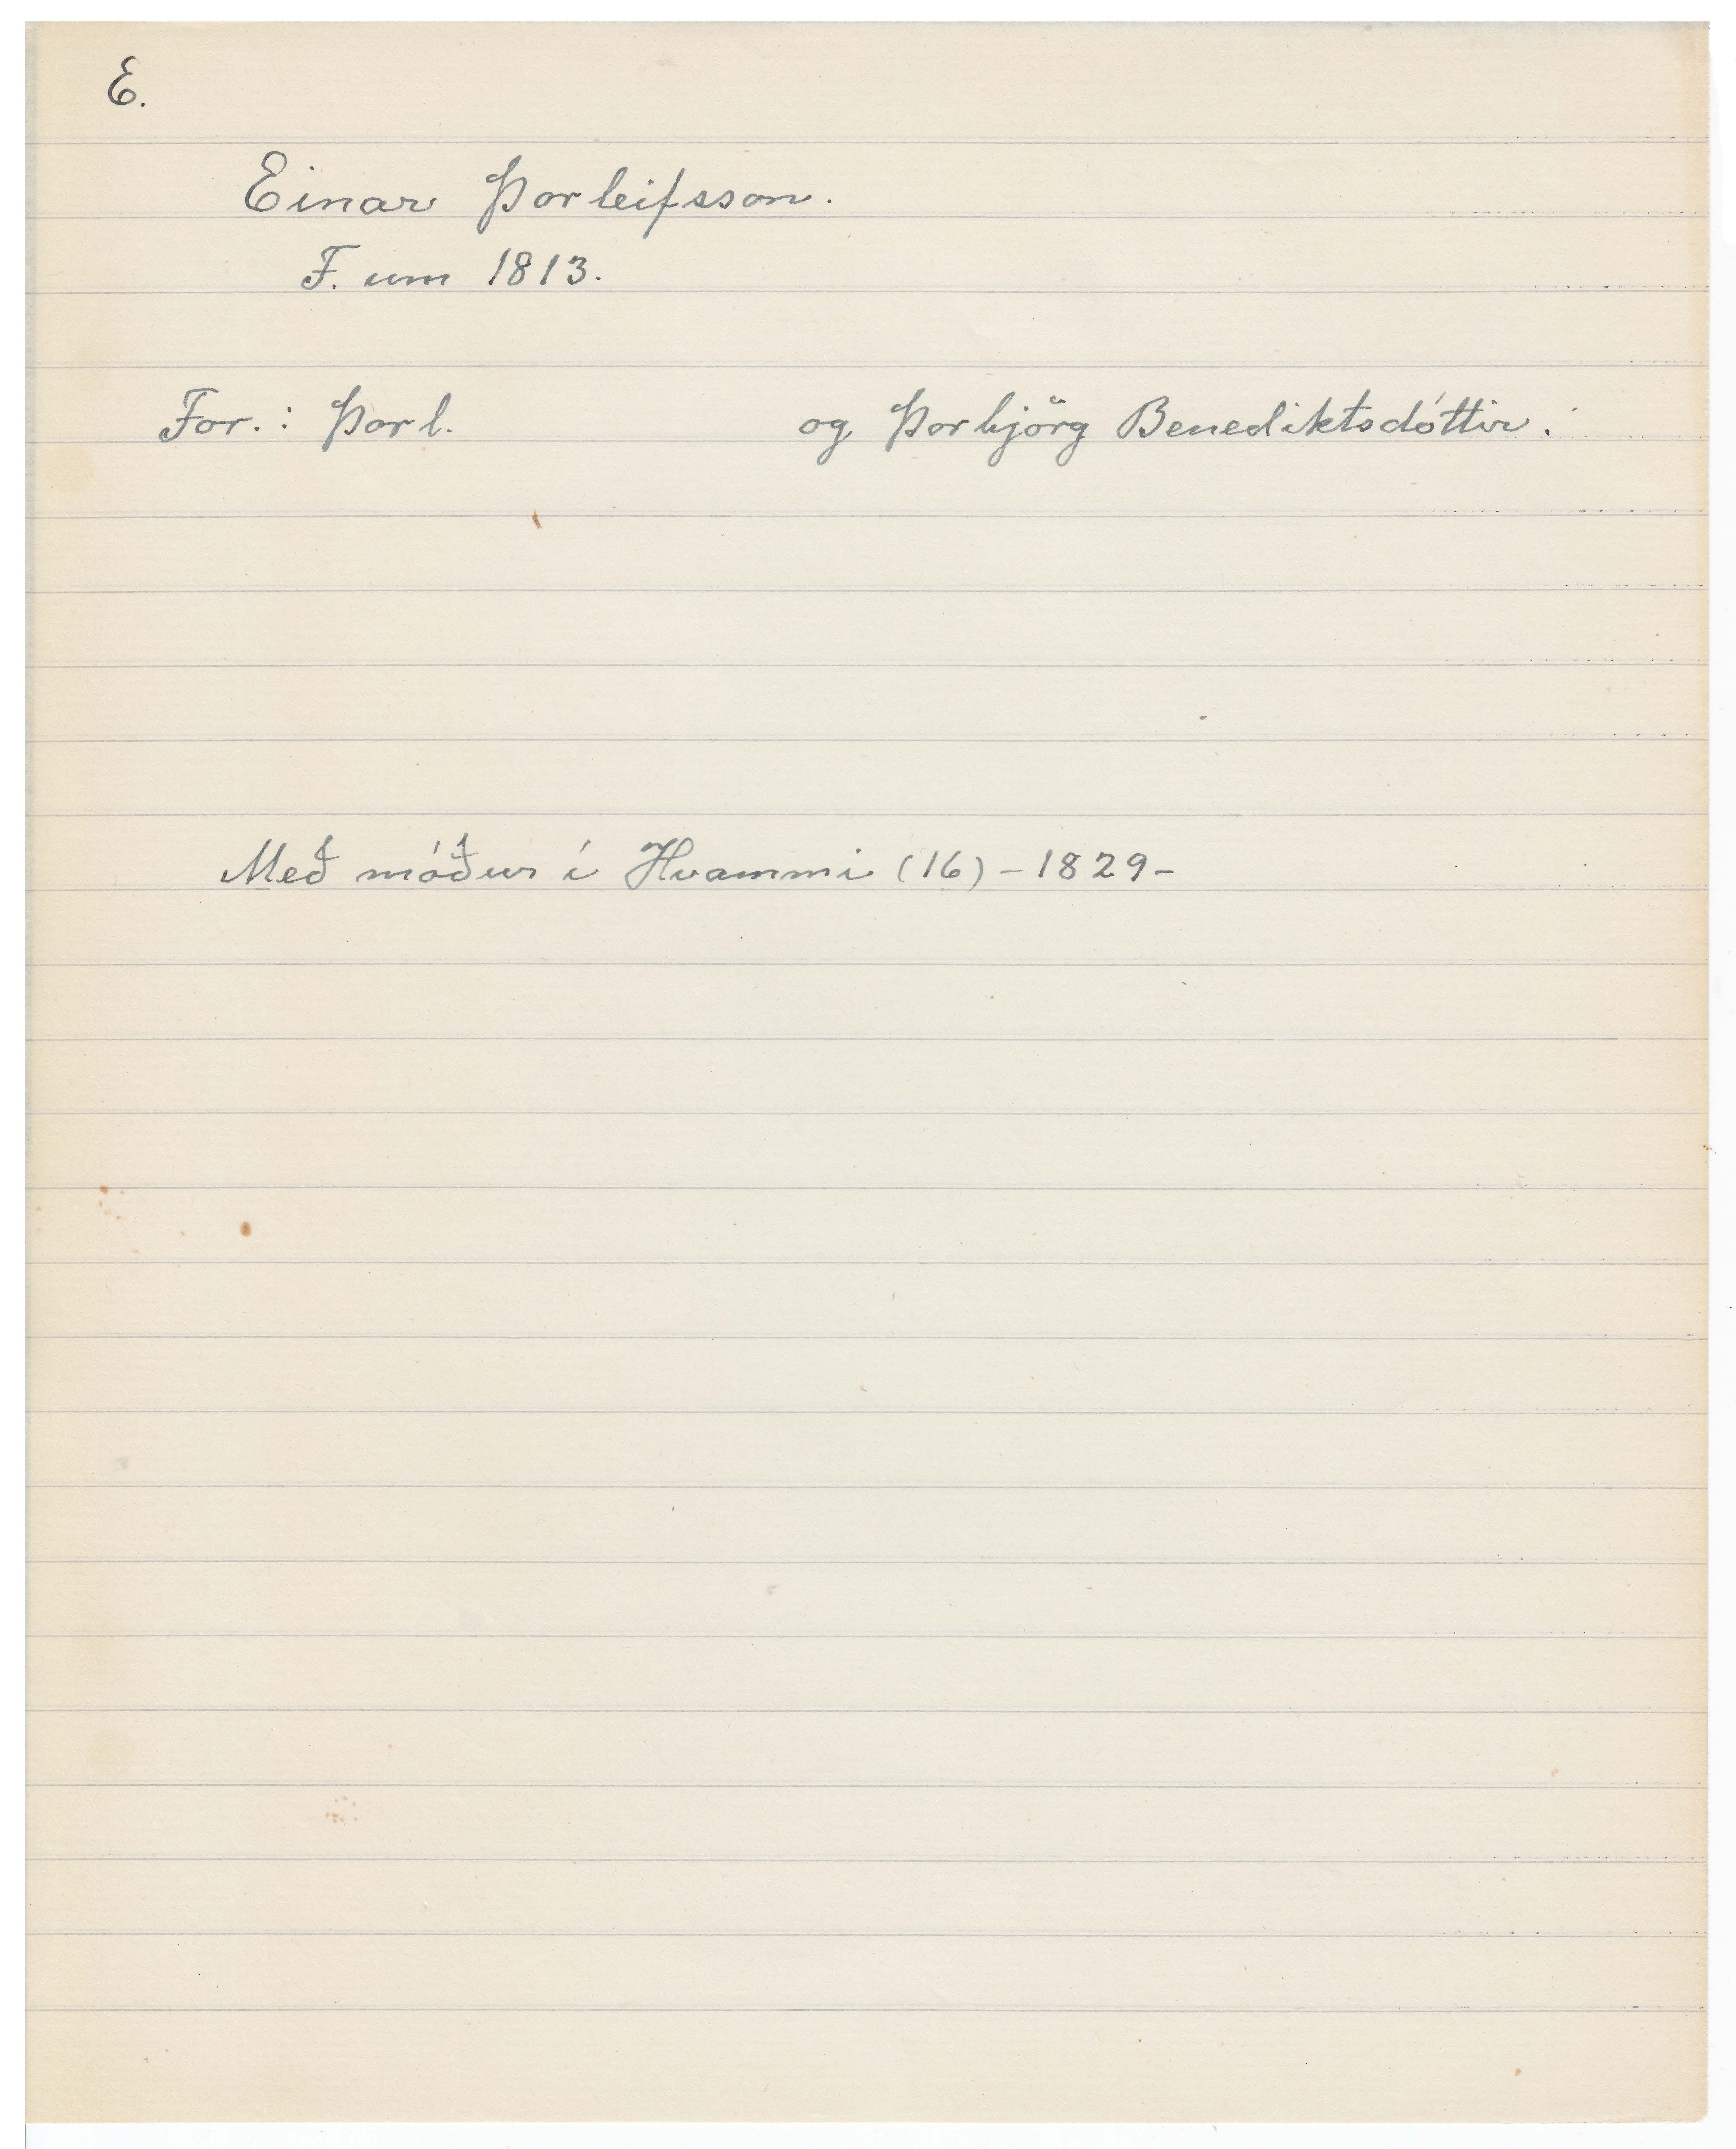 E.
Einar Þorleifsson.
F. um 1813.
For.: Þorl. og Þorbjörg Benediktsdóttir.
Með móður í Hvammi (16) - 1829 -